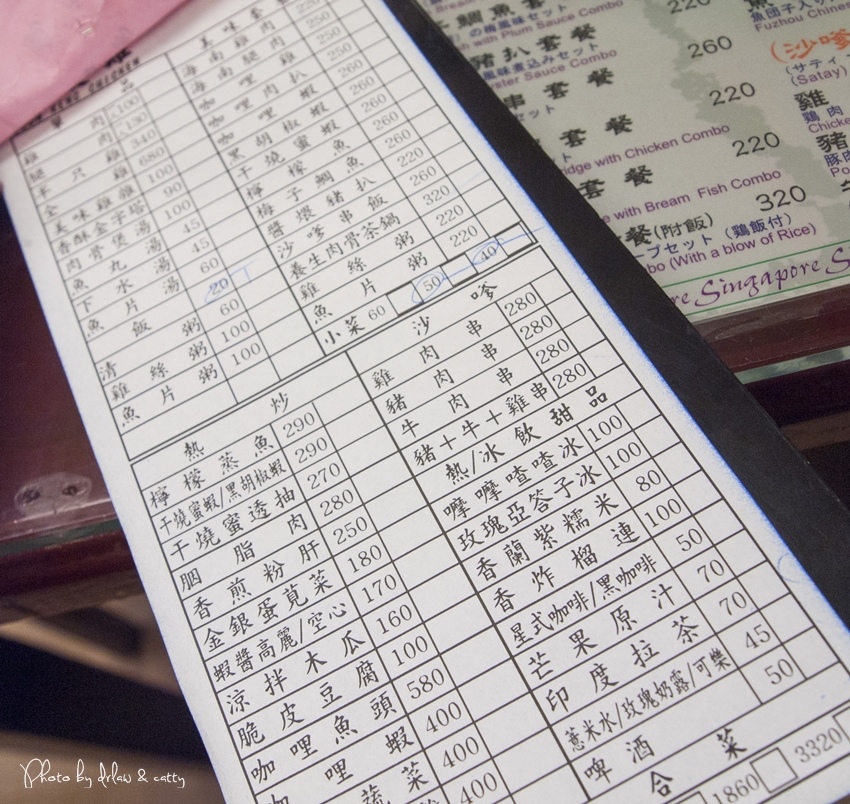 美味套餐
海南雞肉 250
海南腿肉 250
咖哩肉扒 260
咖哩蝦 260
黑胡椒蝦 260
干燒蜜蝦 260
檸檬魚 260
梅子鯛魚 220
醬煨豬扒 260
沙嗲串飯 320
養生肉骨茶鍋 220
雞絲粥 220
魚片粥
小菜 60 50 40
單品
雞肉 100
腿肉 140
半只雞
全雞 680
味雞雜 100
香酥金字塔 90
肉骨煲湯 100
魚丸湯 45
下水湯 45
魚片湯 60
飯 20
清粥 60
雞絲粥 100
魚片粥 100
熱炒
檸檬蒸魚 290
干燒蜜蝦/黑胡椒蝦 290
干燒蜜透抽 270
胭脂肉 280
香煎粉肝 250
金銀蛋莧菜 180
蝦醬高麗/空心 170
涼拌木瓜 160
脆皮豆腐 100
咖哩魚頭 580
咖哩蝦 400
蔬菜 400
400
沙嗲
雞肉串 280
豬肉串 280
牛肉串 280
豬+牛+雞串 280
熱/冰飲甜品
嚤嚤喳喳冰 100
玫瑰亞答子冰 100
香蘭紫糯米 80
香炸榴連 100
星式咖啡/黑咖啡 50
芒果原汁 70
印度拉茶 70
薏米水/玫瑰奶露/可樂 45
啤酒 50
合菜
1860 3320
鯛魚套餐 220
の梅風味セット
with Plum Sauce Combo
豬扒套餐 260
風味煮込みセット
Oyster Sauce Combo
串套餐 220
セット
套餐 220
with Chicken Combo
套餐 320
e with Bream Fish Combo
餐(附飯)
ープセット(鶏飯付)
bo (With a blow of Rice)
魚団子入り
Fuzhou Chinese
(沙嗲
(サティ
(Satay)
雞
鶏肉
Chicke
豬
豚肉
Po
re Singapore S
Photo by drlaw & catty